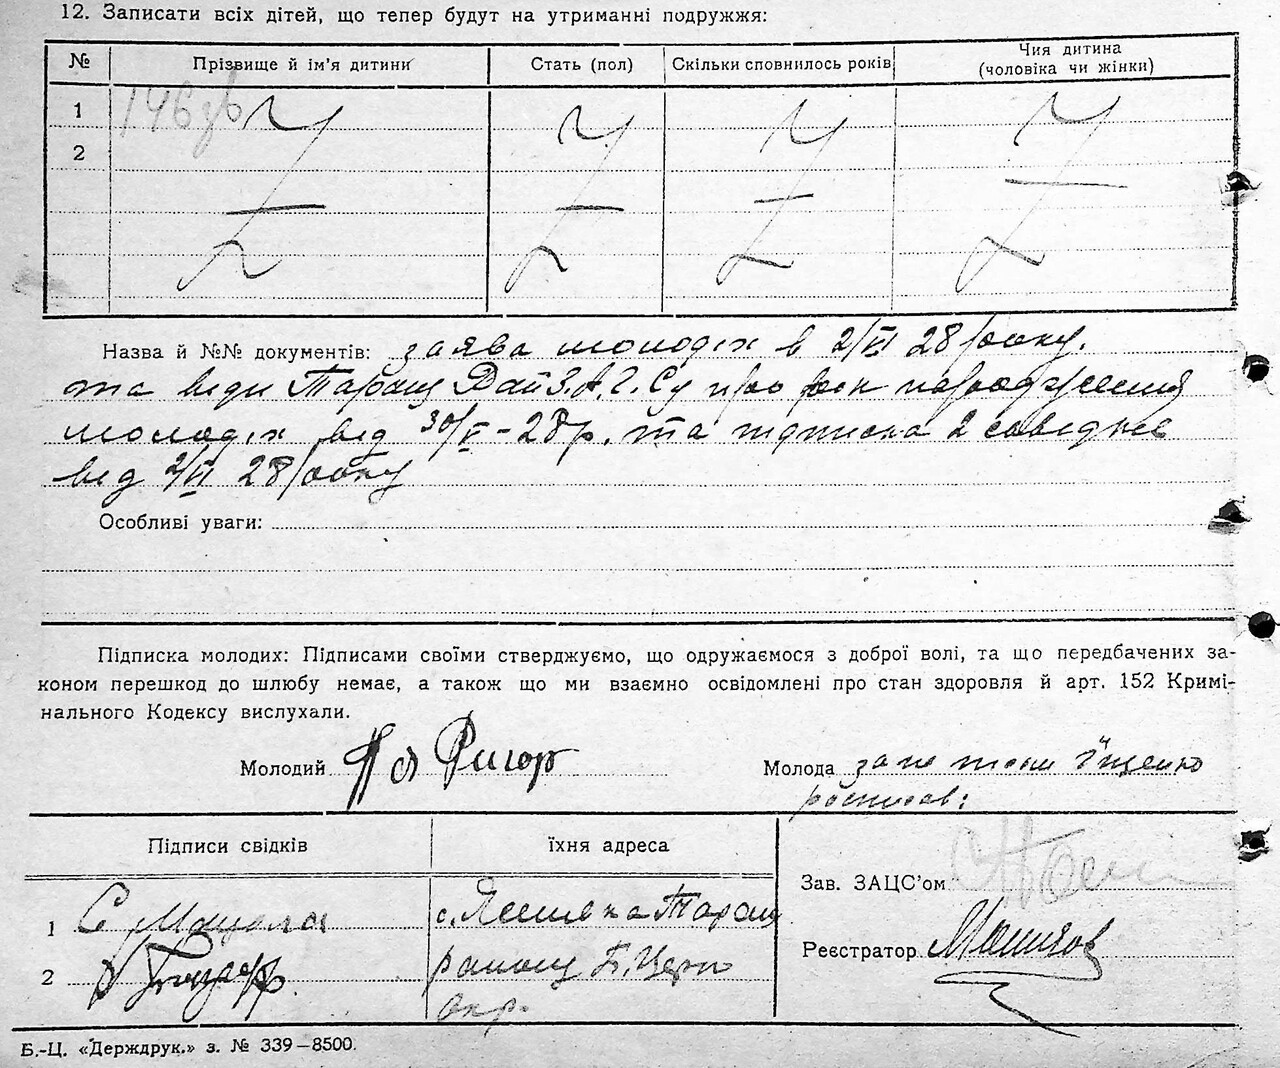 12. Записати всіх дітей, що тепер будут на утриманні подружжя:
№ Прізвище й ім'я дитини Стать (пол) Скільки сповнилось років Чия дитина
(чоловіка чи жінки)
1
2
Назва й №№ документів: заява молодіх в 2/VI 28 року.
та від Таращ Рай З.А.Г.Су про рік народження
молодіх від 30/V - 28 р. та підписка 2 свідків
від 2/VI 28 року
Особливі уваги:
Підписка молодих: Підписами своїми стверджуємо, що одружаємося з доброї волі, та що передбачених за-
коном перешкод до шлюбу немає, а також що ми взаємно освідомлені про стан здоровля й арт. 152 Кримі-
нального Кодексу вислухали.
Молодий Молода за не Іщенко
Підписи свідків їхня адреса
Зав. ЗАЦС'ом
1 с. Таращ
Реєстратор
2 району Б. Церк
окр.
Б.-Ц. «Держдрук.» з. № 339—8500.